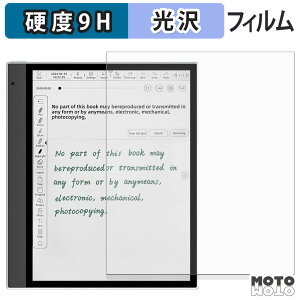 硬度9H 光沢 フィルム
No part of this book may bereproduced or transmitted in
any form or by anymeans, electronic, mechanical,
photocopying,
No part of this book may
bereproduced or transmitted in
any form or by anymeans,
electronic, mechanical,
photocopying.
MOTO
MOTO